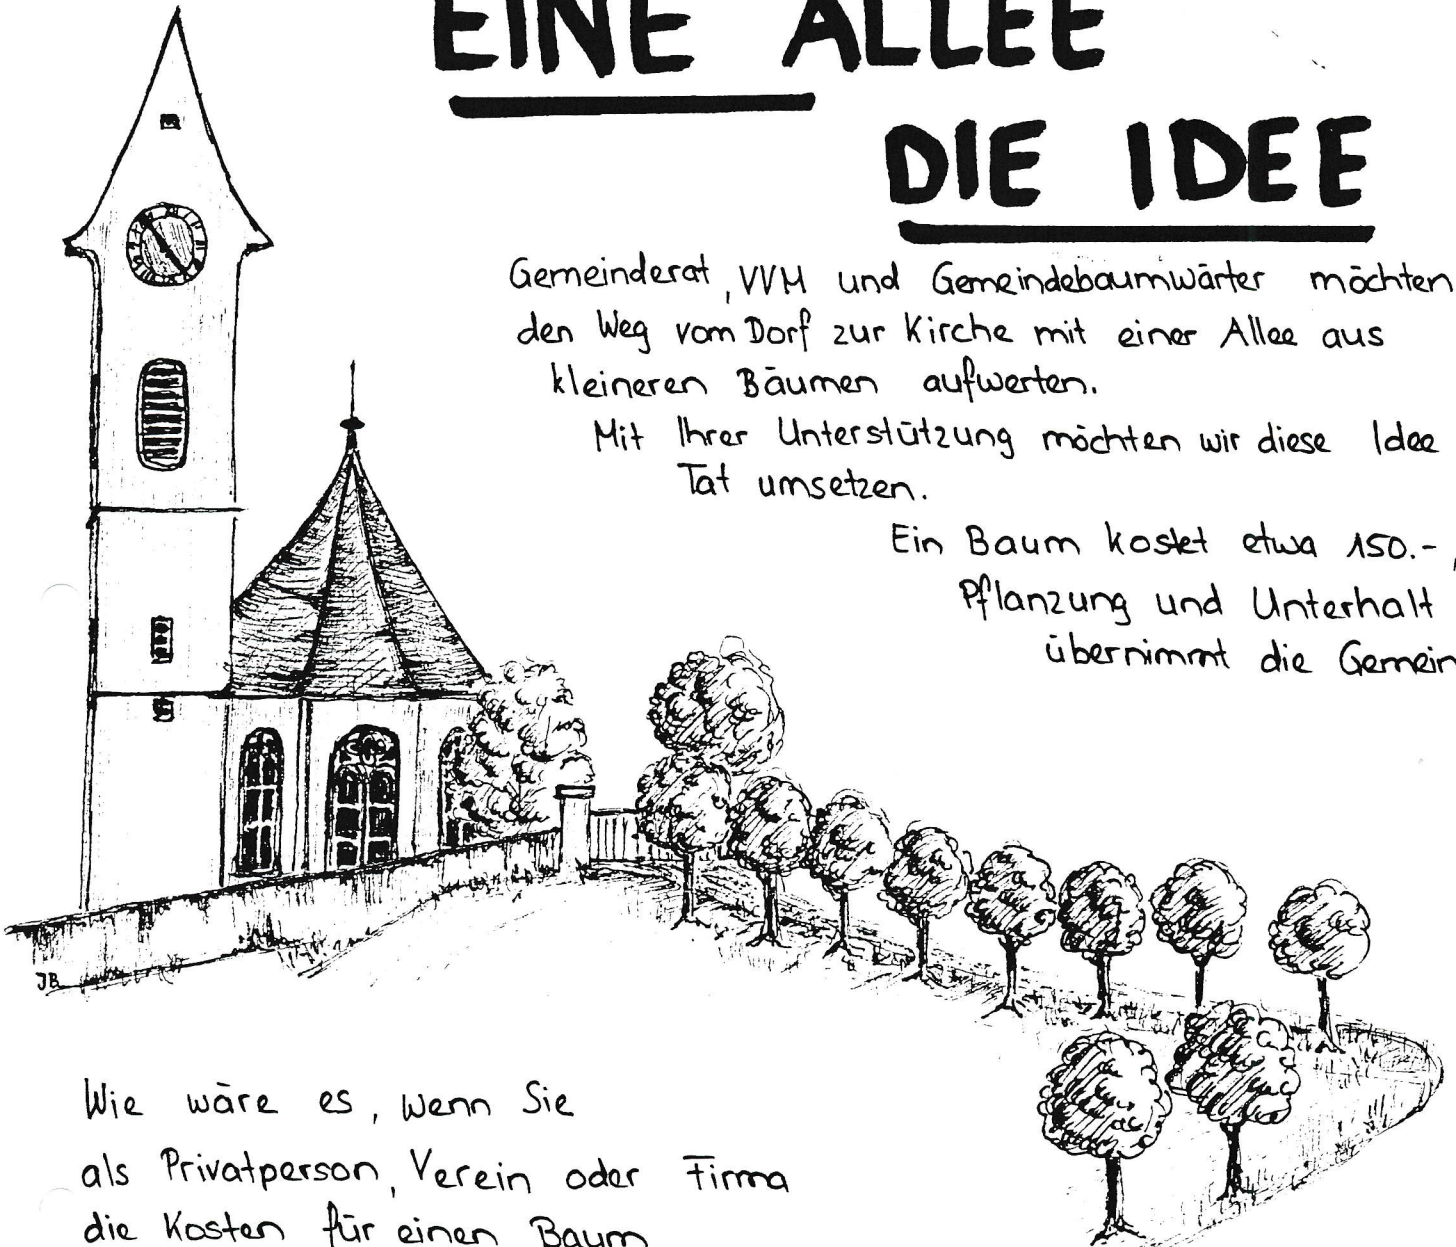 EINE ALLEE
DIE IDEE
Gemeinderat, VVM und Gemeindebaumwärter möchten
den Weg vom Dorf zur Kirche mit einer Allee aus
kleineren Bäumen aufwerten.
Mit Ihrer Unterstützung möchten wir diese Idee
Tat umsetzen.
Ein Baum kostet etwa 150.-,
Pflanzung und Unterhalt
übernimmt die Gemein
JB
Wie wäre es, wenn Sie
als Privatperson, Verein oder Firma
die Kosten für einen Baum